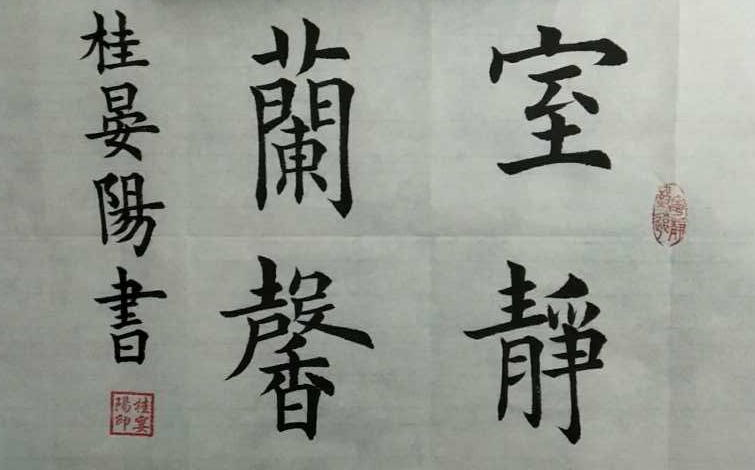 室靜
蘭馨
桂晏陽書
桂宴
陽印